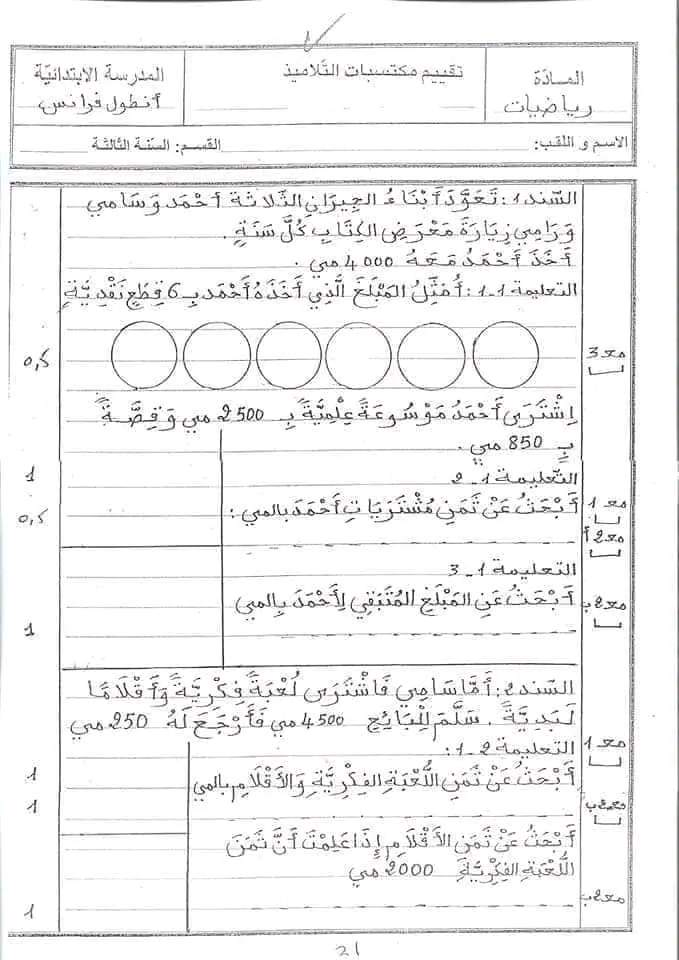 المدرسة الابتدائيّة
أنطول فرانس
تقييم مكتسبات التّلاميذ
المادّة
رياضيات
الاسم و اللقب:
القسم: السّنة الثالثة
السّند 1: تَعَوَّدَ أَبْنَاءُ الجِيرَانِ الثَّلاثَةِ أَحْمَدُ وَسَامِي
وَرَامِي زِيَارَةَ مَعْرَضِ الكِتَابِ كُلَّ سَنَةٍ.
أَخَذَ أَحْمَدُ مَعَهُ 4000 مي.
التعليمة 1-1: أُمَثِّلُ المَبْلَغَ الَّذِي أَخَذَهُ أَحْمَدُ بـ 6 قِطَعٍ نَقْدِيَّةٍ
0,5
مع 3
اِشْتَرَى أَحْمَدُ مَوْسُوعَةً عِلْمِيَّةً بِـ 2500 مي وَقِصَّةً
بِـ 850 مي.
التّعليمة 1-2
1
أَبْحَثُ عَنْ ثَمَنِ مُشْتَرَيَاتِ أَحْمَدَ بالمي:
مع 1
0,5
مع 2 أ
التعليمة 1-3
أَبْحَثُ عَنِ المَبْلَغِ المُتَبَقِّي لِأَحْمَدَ بِالمي
مع 2 ب
1
السّند 2: أَمَّا سَامِي فَاشْتَرَى لُعْبَةً فِكْرِيَّةً وَأَقْلَامًا
لَبَدِيَّةً. سَلَّمَ لِلْبَائِعِ 4500 مي فَأَرْجَعَ لَهُ 250 مي
التعليمة 2-1:
مع 1
1
أَبْحَثُ عَنْ ثَمَنِ اللُّعْبَةِ الفِكْرِيَّةِ وَالأَقْلَامِ بالمي
1
مع 2 ب
أَبْحَثُ عَنْ ثَمَنِ الأَقْلَامِ إِذَا عَلِمْتَ أَنَّ ثَمَنَ
اللُّعْبَةِ الفِكْرِيَّةِ 2000 مي
مع 2 ب
1
21